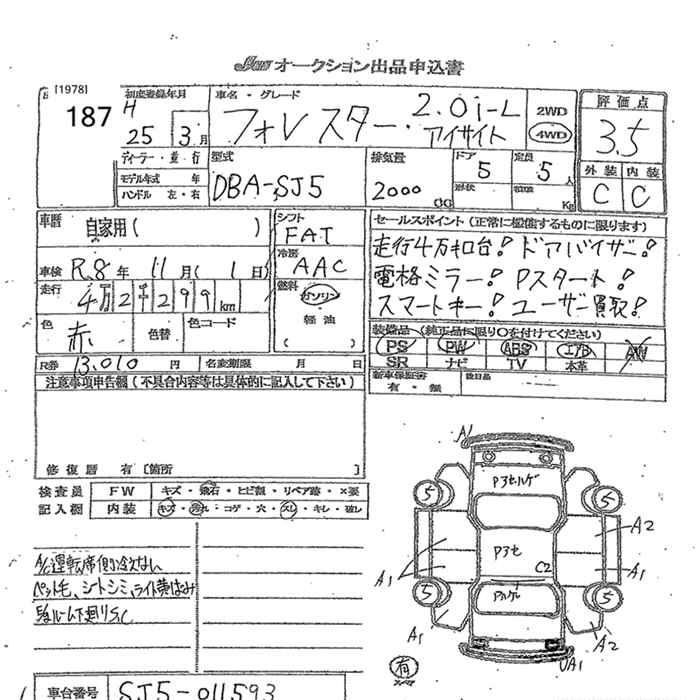 オークション出品申込書
[1978]
187
初度登録年月
H
25 3月
車名・グレード
フォレスター・2.0i-L
アイサイト
2WD
4WD
評価点
3.5
ディーラー・並行
モデル年式 年
ハンドル 左・右
型式
DBA-SJ5
排気量
2000 CC
ドア
5
形状
定員
5人
Kg
外装 内装
C C
車歴
自家用( )
シフト
FAT
セールスポイント(正常に機能するものに限ります)
走行4万キロ台! ドアバイザー!
電格ミラー! Pスタート!
スマートキー! ユーザー買取!
車検 R.8年 11月(1日)
冷房
AAC
走行
4万2千299km
燃料
ガソリン
軽油
( )
色
赤
色替
色コード
装備品(純正品に限り○を付けてください)
PS PW ABS エアB AW
SR ナビ TV 本革
R券 13,010円
名変期限 月 日
新車保証書
有・無
後日品
注意事項申告欄(不具合内容等は具体的に記入して下さい)
修復歴 有[箇所 ]
検査員
記入欄
FW
キズ・飛石・ヒビ割・リペア跡・×要
内装
キズ・汚れ・コゲ・穴・スレ・キレ・破レ
A/C運転席側冷えない
ペット毛、シートシミ、ライト黄ばみ
下廻りS.C
A1
P3セハゲ
5
5
A2
P3セ
C2
A1
A1
Pハゲ
5
5
A1
A2
UA1
有
車台番号
SJ5-011593